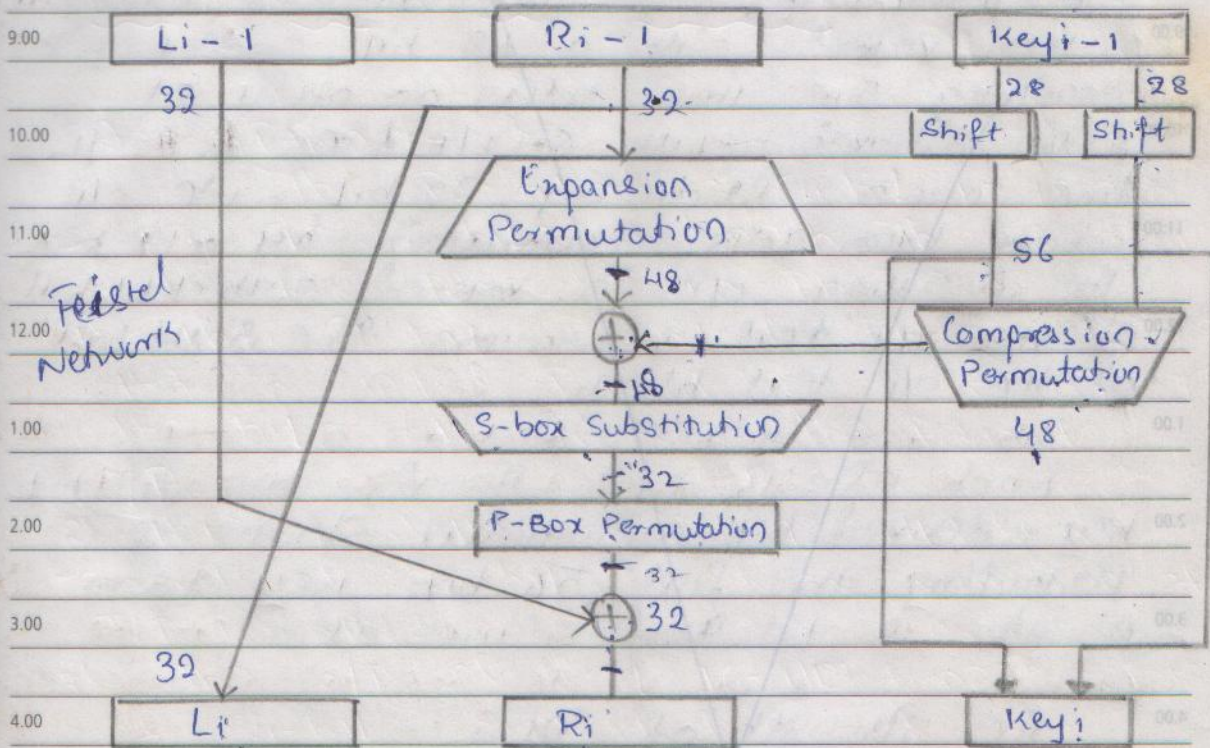 9.00 Li-1 Ri-1 Keyi-1
32 32 28 28
10.00 Shift Shift
Expansion
11.00 Permutation
56
48
Feistel
12.00 Compression
Network Permutation
48
1.00 S-box Substitution 48
32
2.00 P-Box Permutation
32
3.00 32
32
4.00 Li Ri Keyi